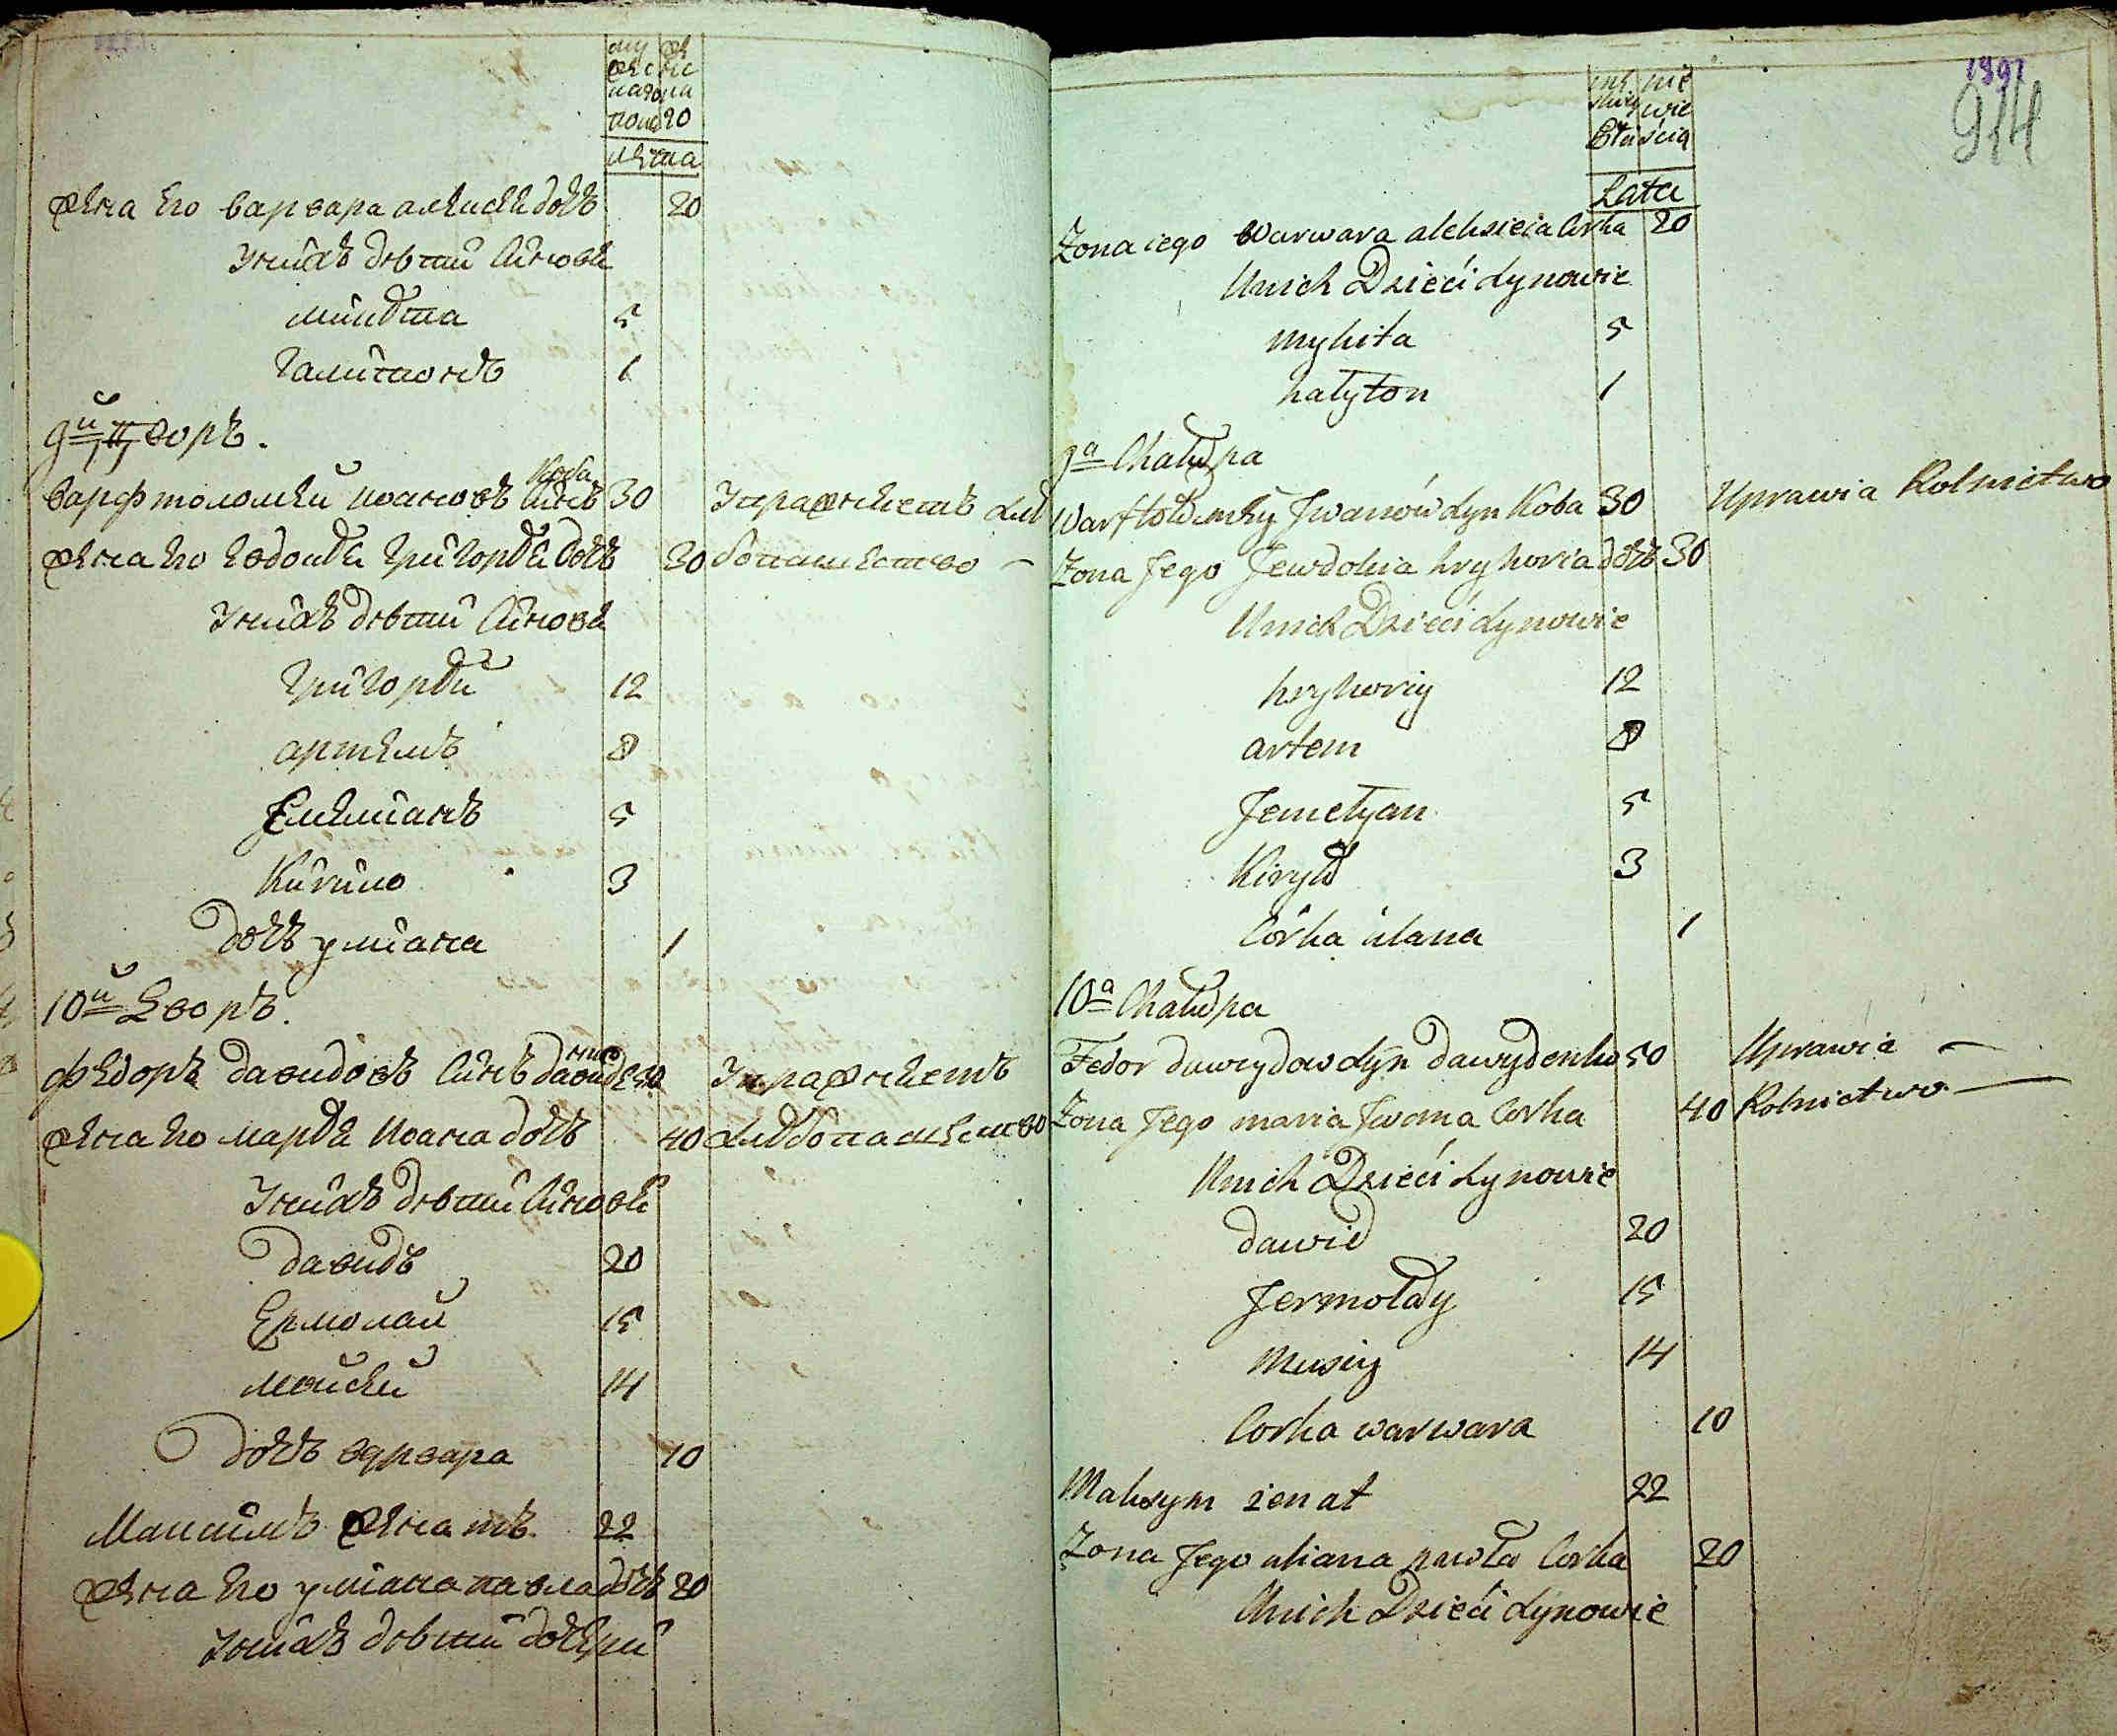 му же
жес нс
каго ка
полз 20
лѣта
жена его варвара алексѣя дочь 20
У нихъ дѣти сыновя
микита 5
галиктионъ 1
9й дворъ.
варфтоломей иоановъ сынъ Коба 30 Упражняетъ хлѣ
жена его евдокѣя григорѣя дочь 30 бопашество –
У нихъ дѣти сынове
григорѣй 12
артемъ 8
Емелианъ 5
Кирило 3
дочь улиана 1
10й Дворъ.
федоръ давидовъ сынъ давиденко 50 Упражняетъ
жена его марѣя иоана дочь 40 хлѣбопашество
У нихъ дѣти сынови
давидъ 20
Ермолай 15
мойсей 14
дочь варвара 10
Максимъ женатъ 22
жена его улиана павла дочь 20
У нихъ дѣти дочери
1991
914
mę nie
skiey wie
Płci ścią
Lata
Zona iego warwara aleksieia Corka 20
Unich Dzieci Synowie
mykita 5
hałyton 1
9a Chałupa
Warftołomey Jwanów Syn Koba 30 Uprawia Rolnictwo
Zona Jego Jewdokia hryhoria dočь 30
Unich Dzieci Synowie
hryhoriy 12
artem 8
Jemełyan 5
Kiryło 3
Córka ulana 1
10a Chałupa
Fedor dawydow Syn dawydenko 50 Uprawia –
Zona Jego maria Jwana Corka 40 Rolnictwo –
Unich Dzieci Synowie
dawid 20
Jermołay 15
Musiy 14
Corka warwara 10
Maksym żenat 22
Zona Jego uliana pawła Corka 20
Unich Dzieci Synowie